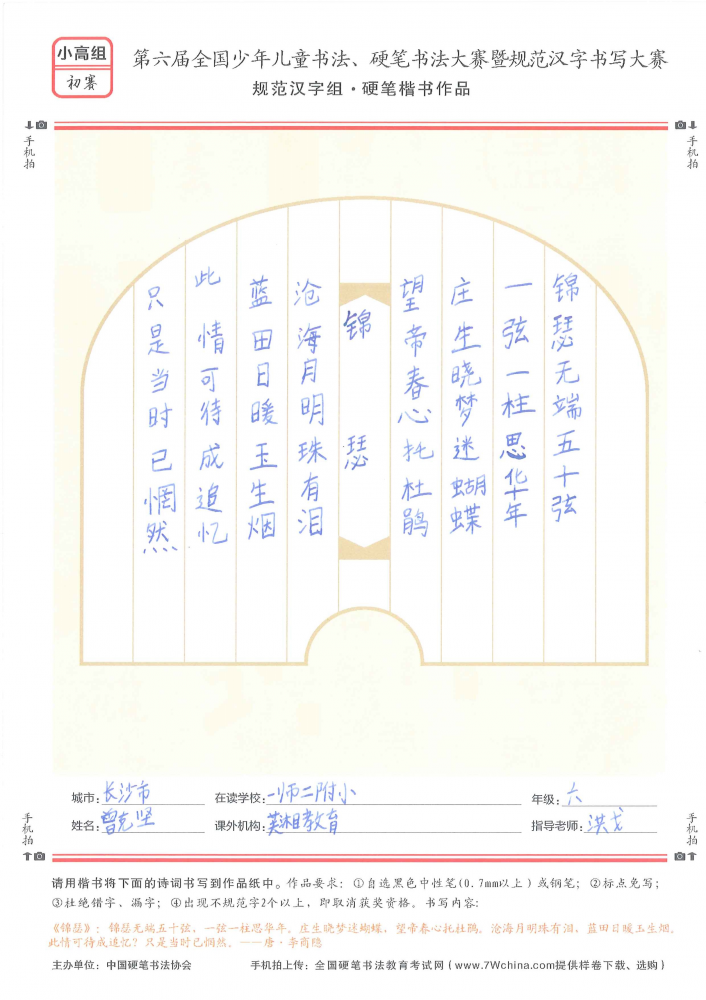 小高组
初赛
第六届全国少年儿童书法、硬笔书法大赛暨规范汉字书写大赛
规范汉字组·硬笔楷书作品
手机拍
手机拍
锦瑟无端五十弦
一弦一柱思华年
庄生晓梦迷蝴蝶
望帝春心托杜鹃
锦瑟
沧海月明珠有泪
蓝田日暖玉生烟
此情可待成追忆
只是当时已惘然
城市:长沙市 在读学校:一师二附小 年级:六
姓名:曾克坚 课外机构:美湘教育 指导老师:洪戈
手机拍
手机拍
请用楷书将下面的诗词书写到作品纸中。作品要求:①自选黑色中性笔(0.7mm以上)或钢笔;②标点免写;
③杜绝错字、漏字;④出现不规范字2个以上,即取消获奖资格。书写内容:
《锦瑟》:锦瑟无端五十弦,一弦一柱思华年。庄生晓梦迷蝴蝶,望帝春心托杜鹃。沧海月明珠有泪,蓝田日暖玉生烟。
此情可待成追忆?只是当时已惘然。——唐·李商隐
主办单位:中国硬笔书法协会 手机拍上传:全国硬笔书法教育考试网(www.7Wchina.com提供样卷下载、选购)